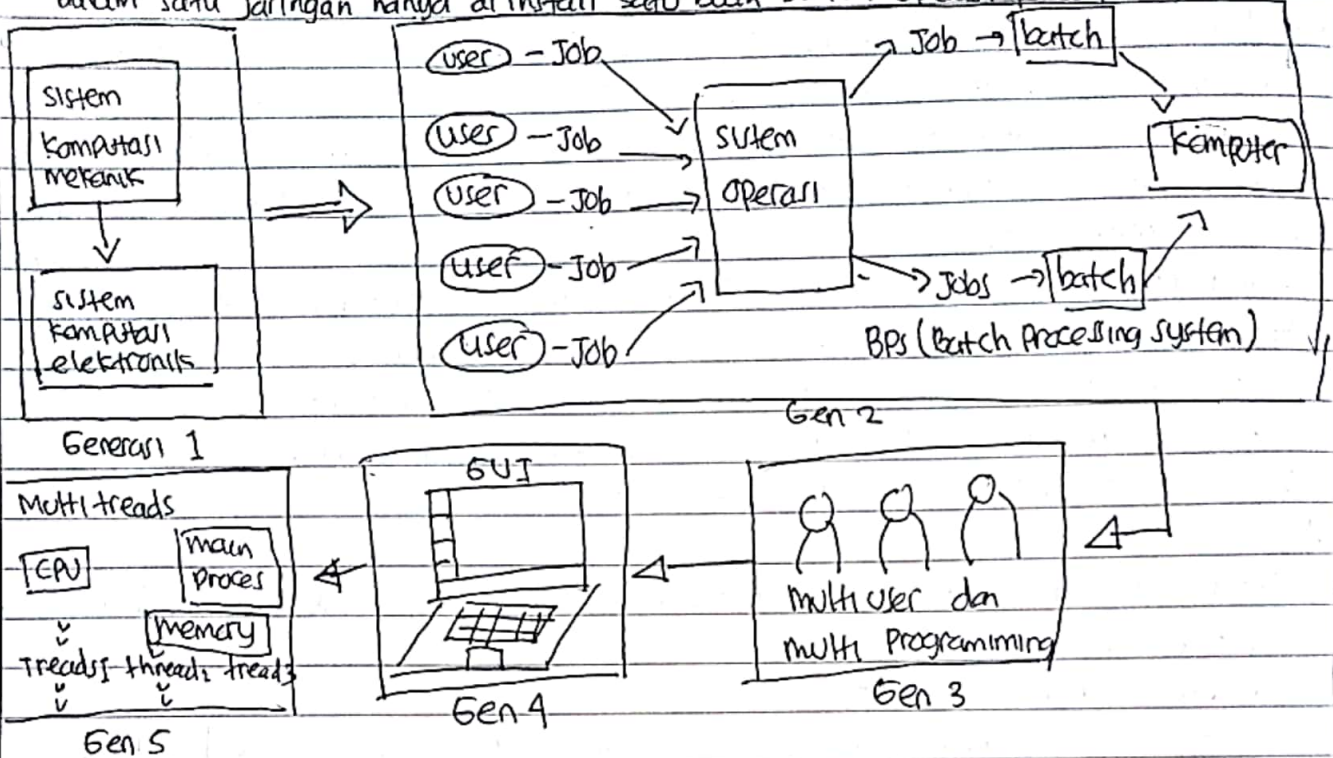 dalam satu jaringan hanya di install satu
sistem
komputasi
mekanik
sistem
komputasi
elektronik
Generasi 1
user - Job
user - Job
user - Job
user - Job
user - Job
sistem
operasi
Job → batch
komputer
Jobs → batch
BPS (Batch Processing System)
Gen 2
multi user dan
multi programiming
Gen 3
GUI
Gen 4
Multi treads
CPU
main
proces
memory
Treads1 thread2 tread3
Gen 5